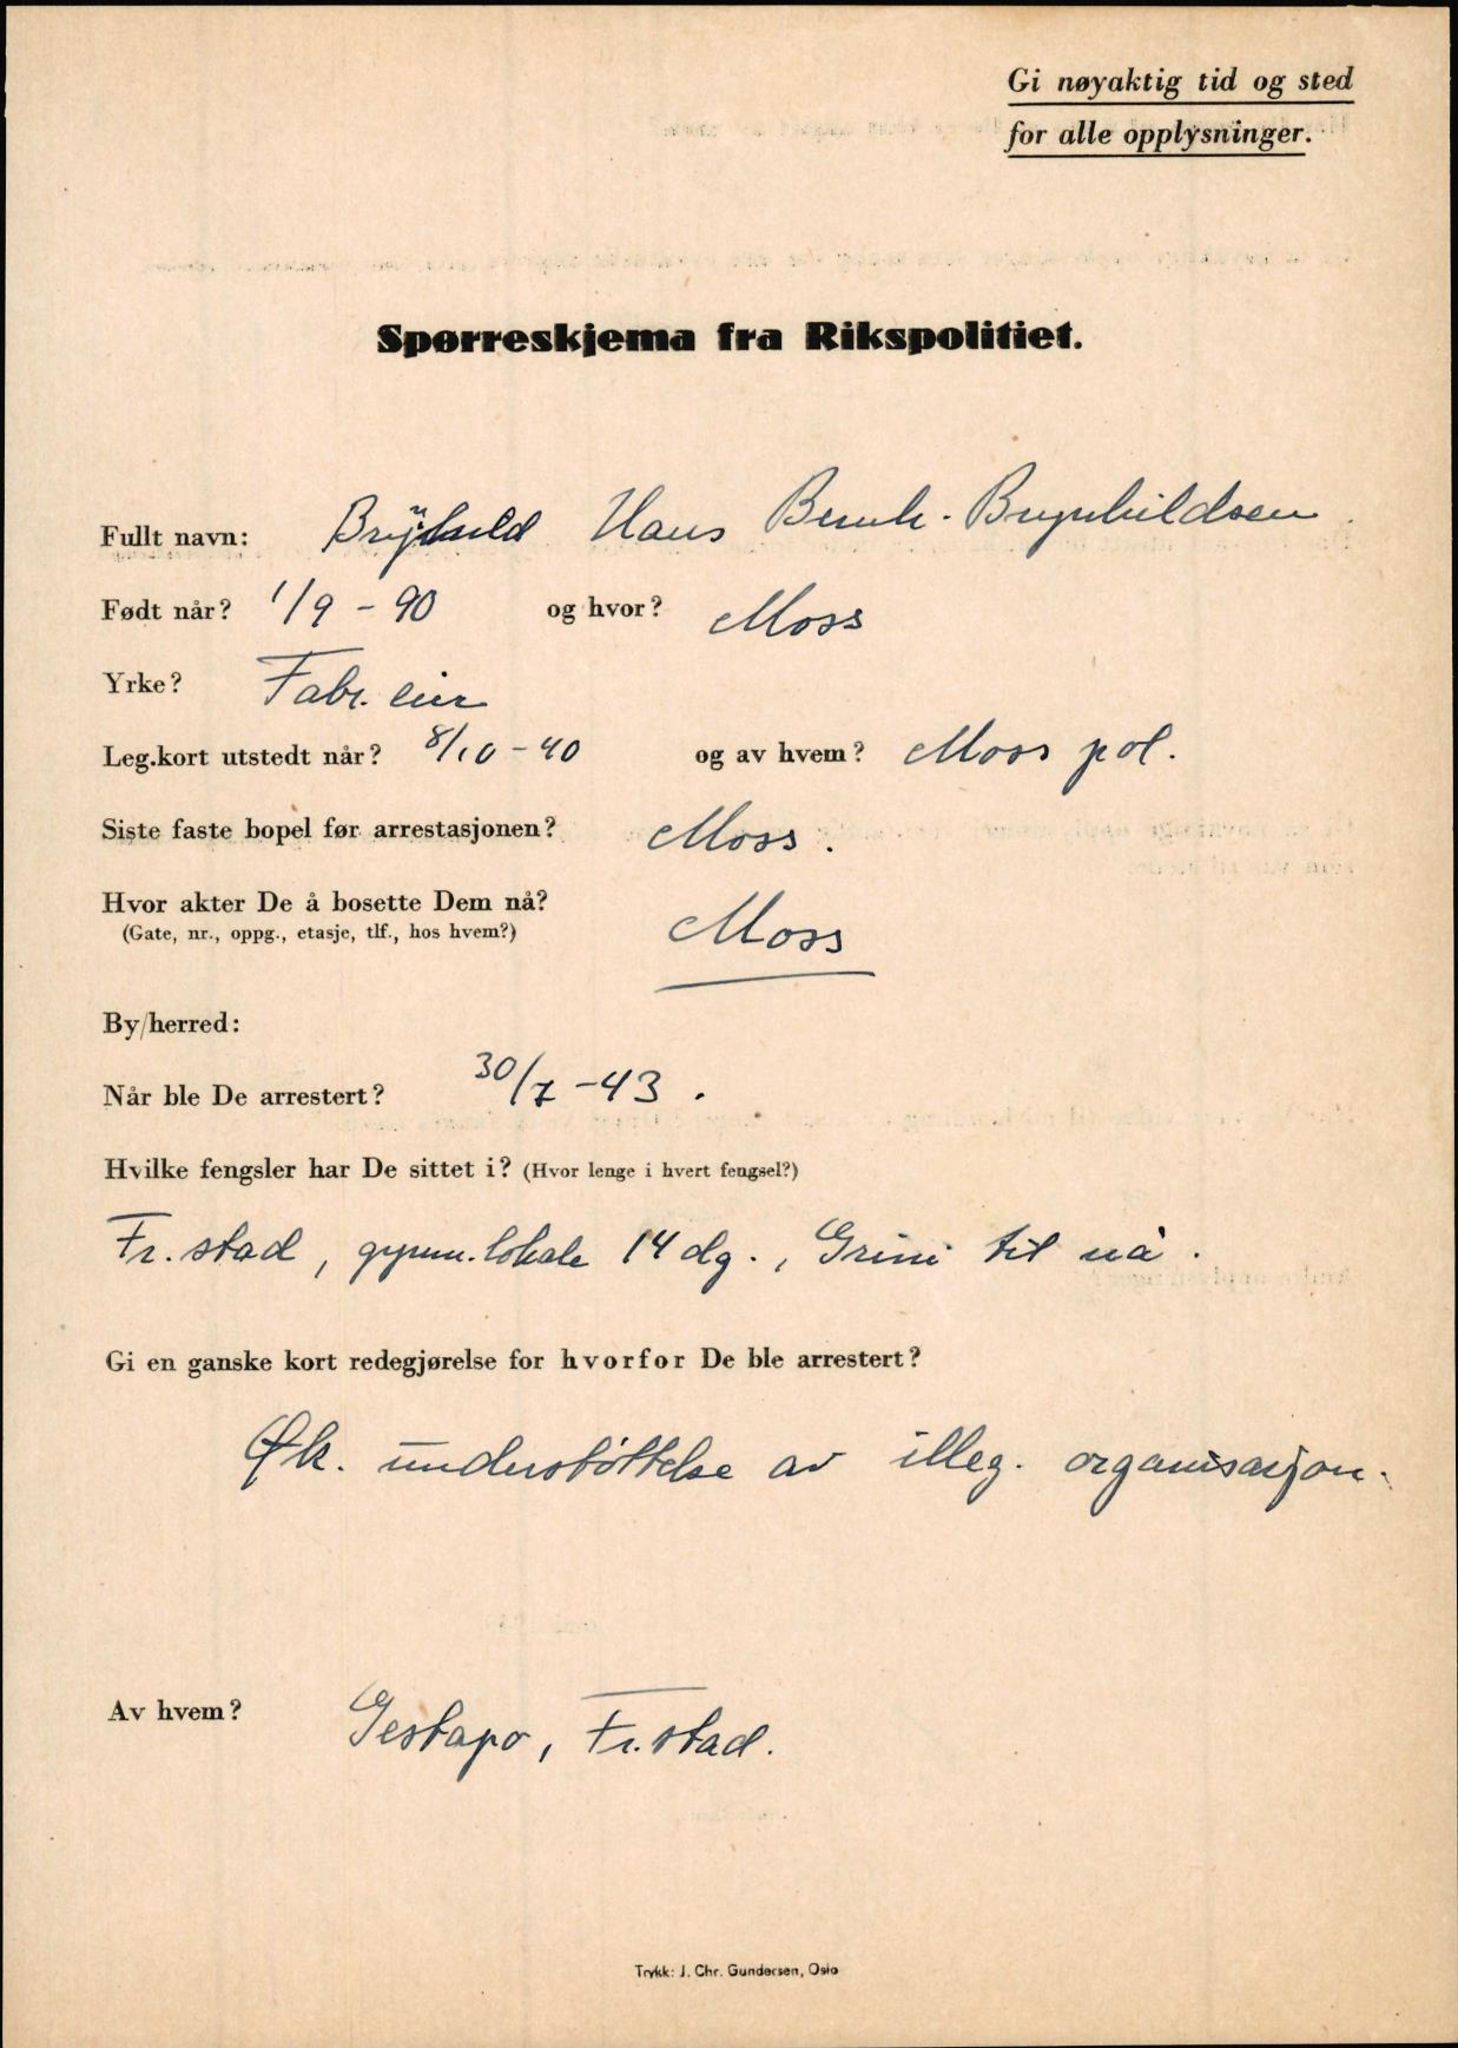 Gi nøyaktig tid og sted
for alle opplysninger.
Spørreskjema fra Rikspolitiet.
Fullt navn: Hans Bernh. Brynhildsen
Født når? 1/9 - 90 og hvor? Moss
Yrke? Fabr. eier
Leg.kort utstedt når? 8/10 - 40 og av hvem? Moss pol.
Siste faste bopel før arrestasjonen? Moss.
Hvor akter De å bosette Dem nå? Moss
(Gate, nr., oppg., etasje, tlf., hos hvem?)
By/herred:
Når ble De arrestert? 30/7 - 43.
Hvilke fengsler har De sittet i? (Hvor lenge i hvert fengsel?)
Fr.stad, gymn.lokale 14 dg., Grini til nå.
Gi en ganske kort redegjørelse for hvorfor De ble arrestert?
Øk. understøttelse av illeg. organisasjon.
Av hvem? Gestapo, Fr.stad.
Trykk: J. Chr. Gundersen, Oslo